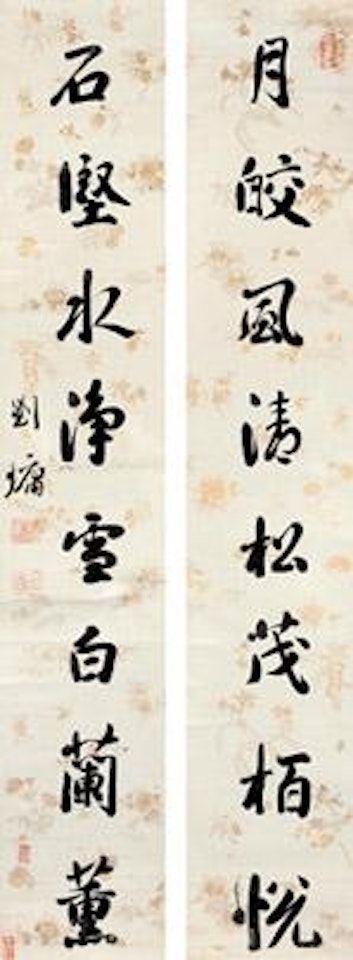 月皎風清松茂栢悦
石堅水淨雪白蘭薰
劉墉